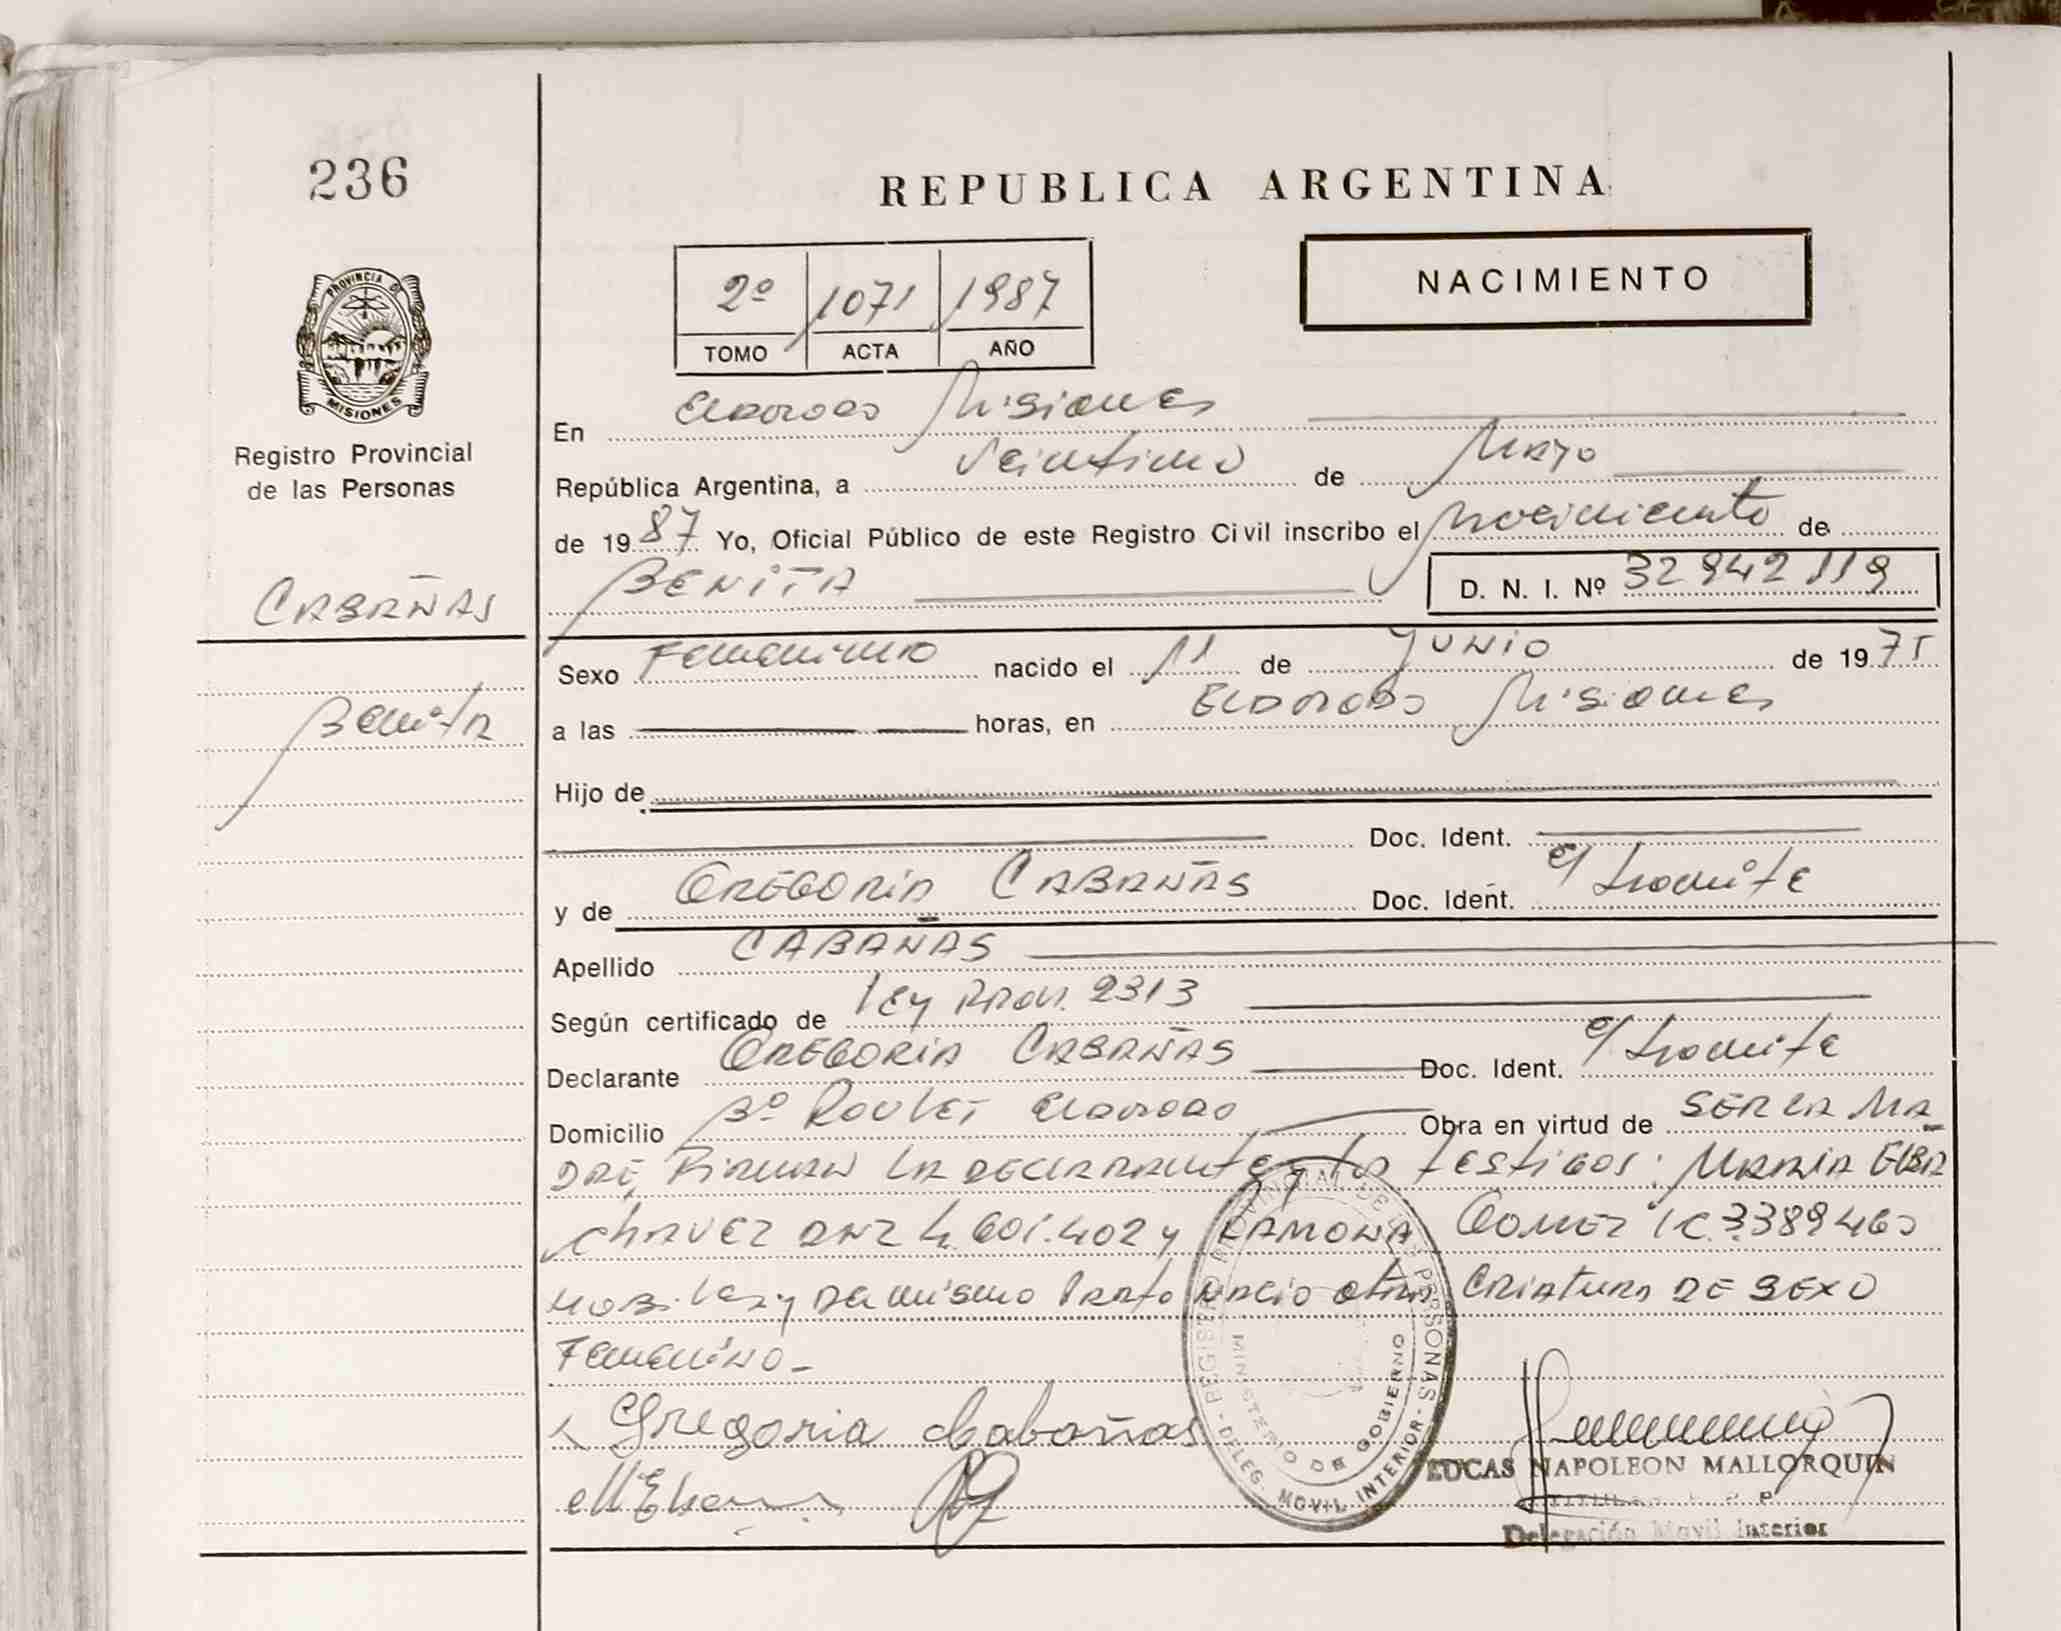 236
REPUBLICA ARGENTINA
NACIMIENTO
2º 1071 1987
TOMO ACTA AÑO
PROVINCIA D
MISIONES
Registro Provincial
de las Personas
CABAÑAS
Benita
En Eldorado Misiones
República Argentina, a Veintiuno de Mayo
de 1987 Yo, Oficial Público de este Registro Civil inscribo el Nacimiento de
BENITA D. N. I. Nº 32942119
Sexo Femenino nacido el 11 de JUNIO de 1975
a las horas, en Eldorado Misiones
Hijo de
Doc. Ident.
y de GREGORIA CABAÑAS Doc. Ident. e/ tramite
Apellido CABAÑAS
Según certificado de Ley Prov. 2313
Declarante GREGORIA CABAÑAS Doc. Ident. e/ tramite
Domicilio Bº Roulet Eldorado Obra en virtud de SER LA MA
DRE, Firman LA DECLARANTE y los testigos: MARIA ELBA
CHAVEZ DNI 4.601.402 y RAMONA GOMEZ LC 3.389.463
y DEL mismo Parto NACIO otra CRIATURA DE SEXO
Femenino-
Gregoria Cabañas
REGISTRO PROVINCIAL DE LAS PERSONAS - DELEG. MOVIL INTERIOR -
MINISTERIO DE GOBIERNO
LUCAS NAPOLEON MALLORQUIN
Delegación Movil Interior